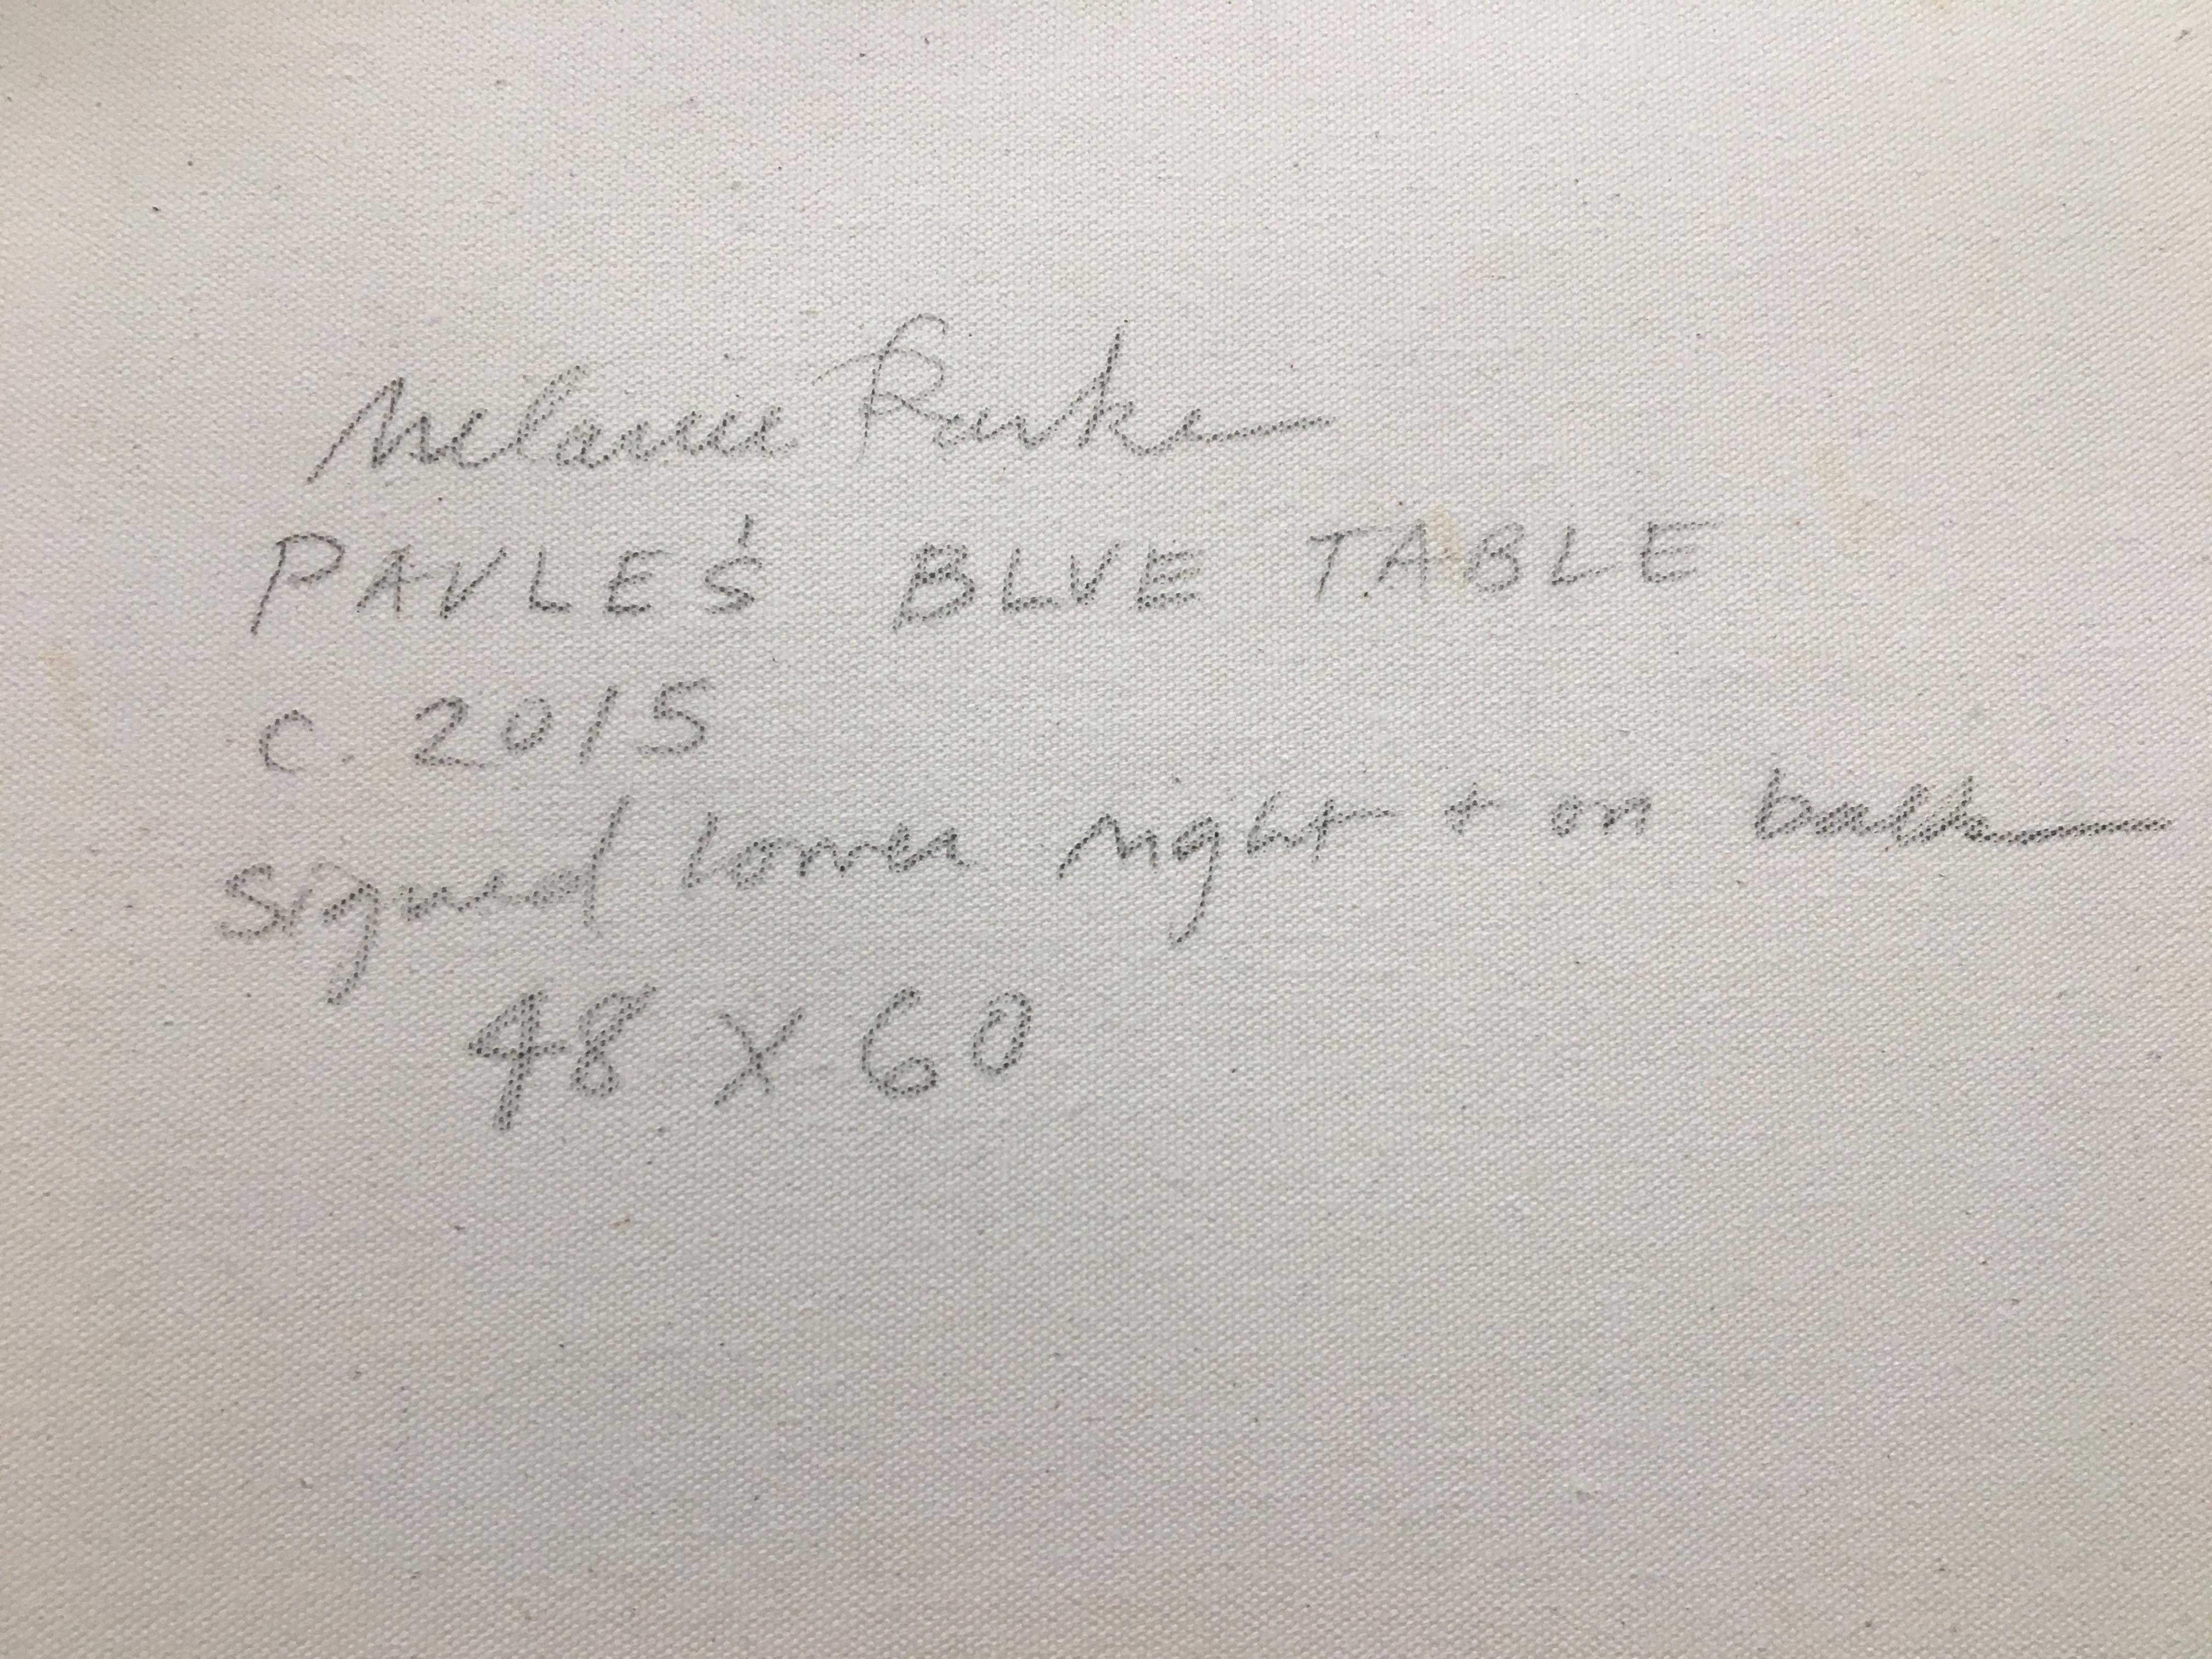 Melanie Parke
PAVLE'S BLUE TABLE
c. 2015
signed lower right + on back
48 X 60